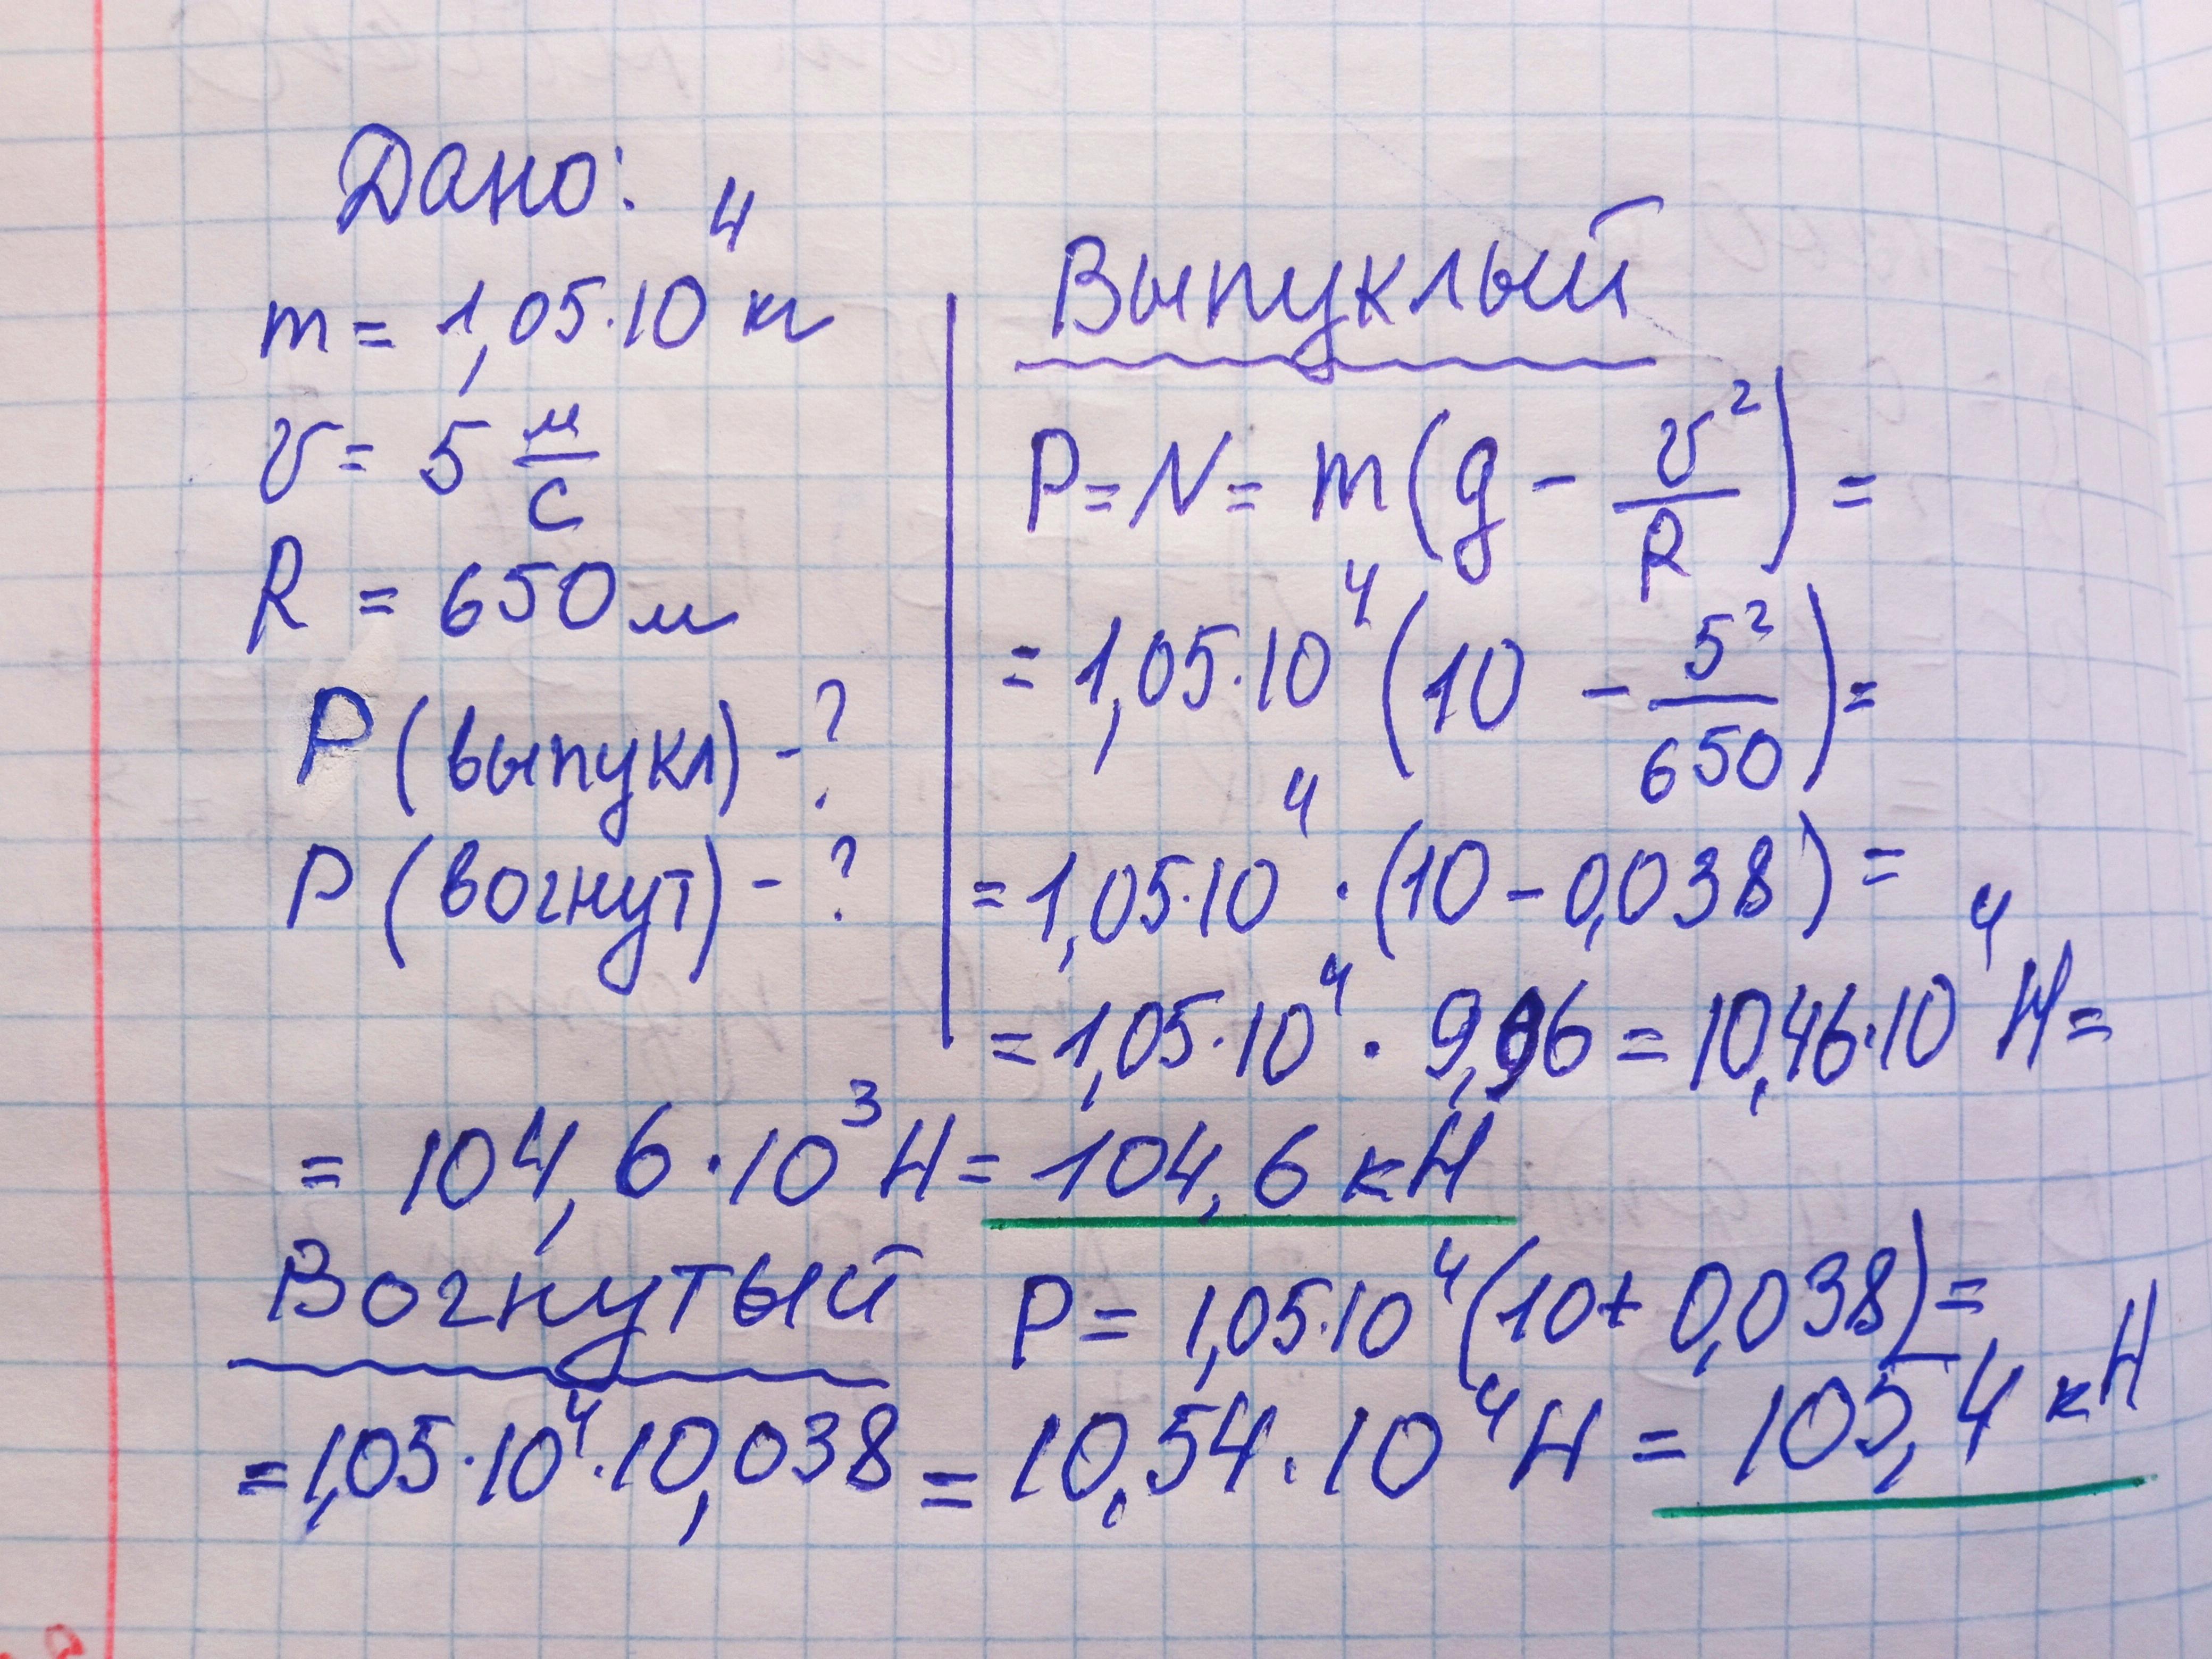 Дано:
m = 1,05·10⁴ кг
v = 5 м/с
R = 650 м
P (выпукл) - ?
P (вогнут) - ?
Выпуклый
P = N = m(g - v²/R) =
= 1,05·10⁴ (10 - 5²/650) =
= 1,05·10⁴ · (10 - 0,038) =
= 1,05·10⁴ · 9,96 = 10,46·10⁴ Н =
= 104,6·10³ Н = 104,6 кН
Вогнутый P = 1,05·10⁴ (10 + 0,038) =
= 1,05·10⁴ · 10,038 = 10,54·10⁴ Н = 105,4 кН